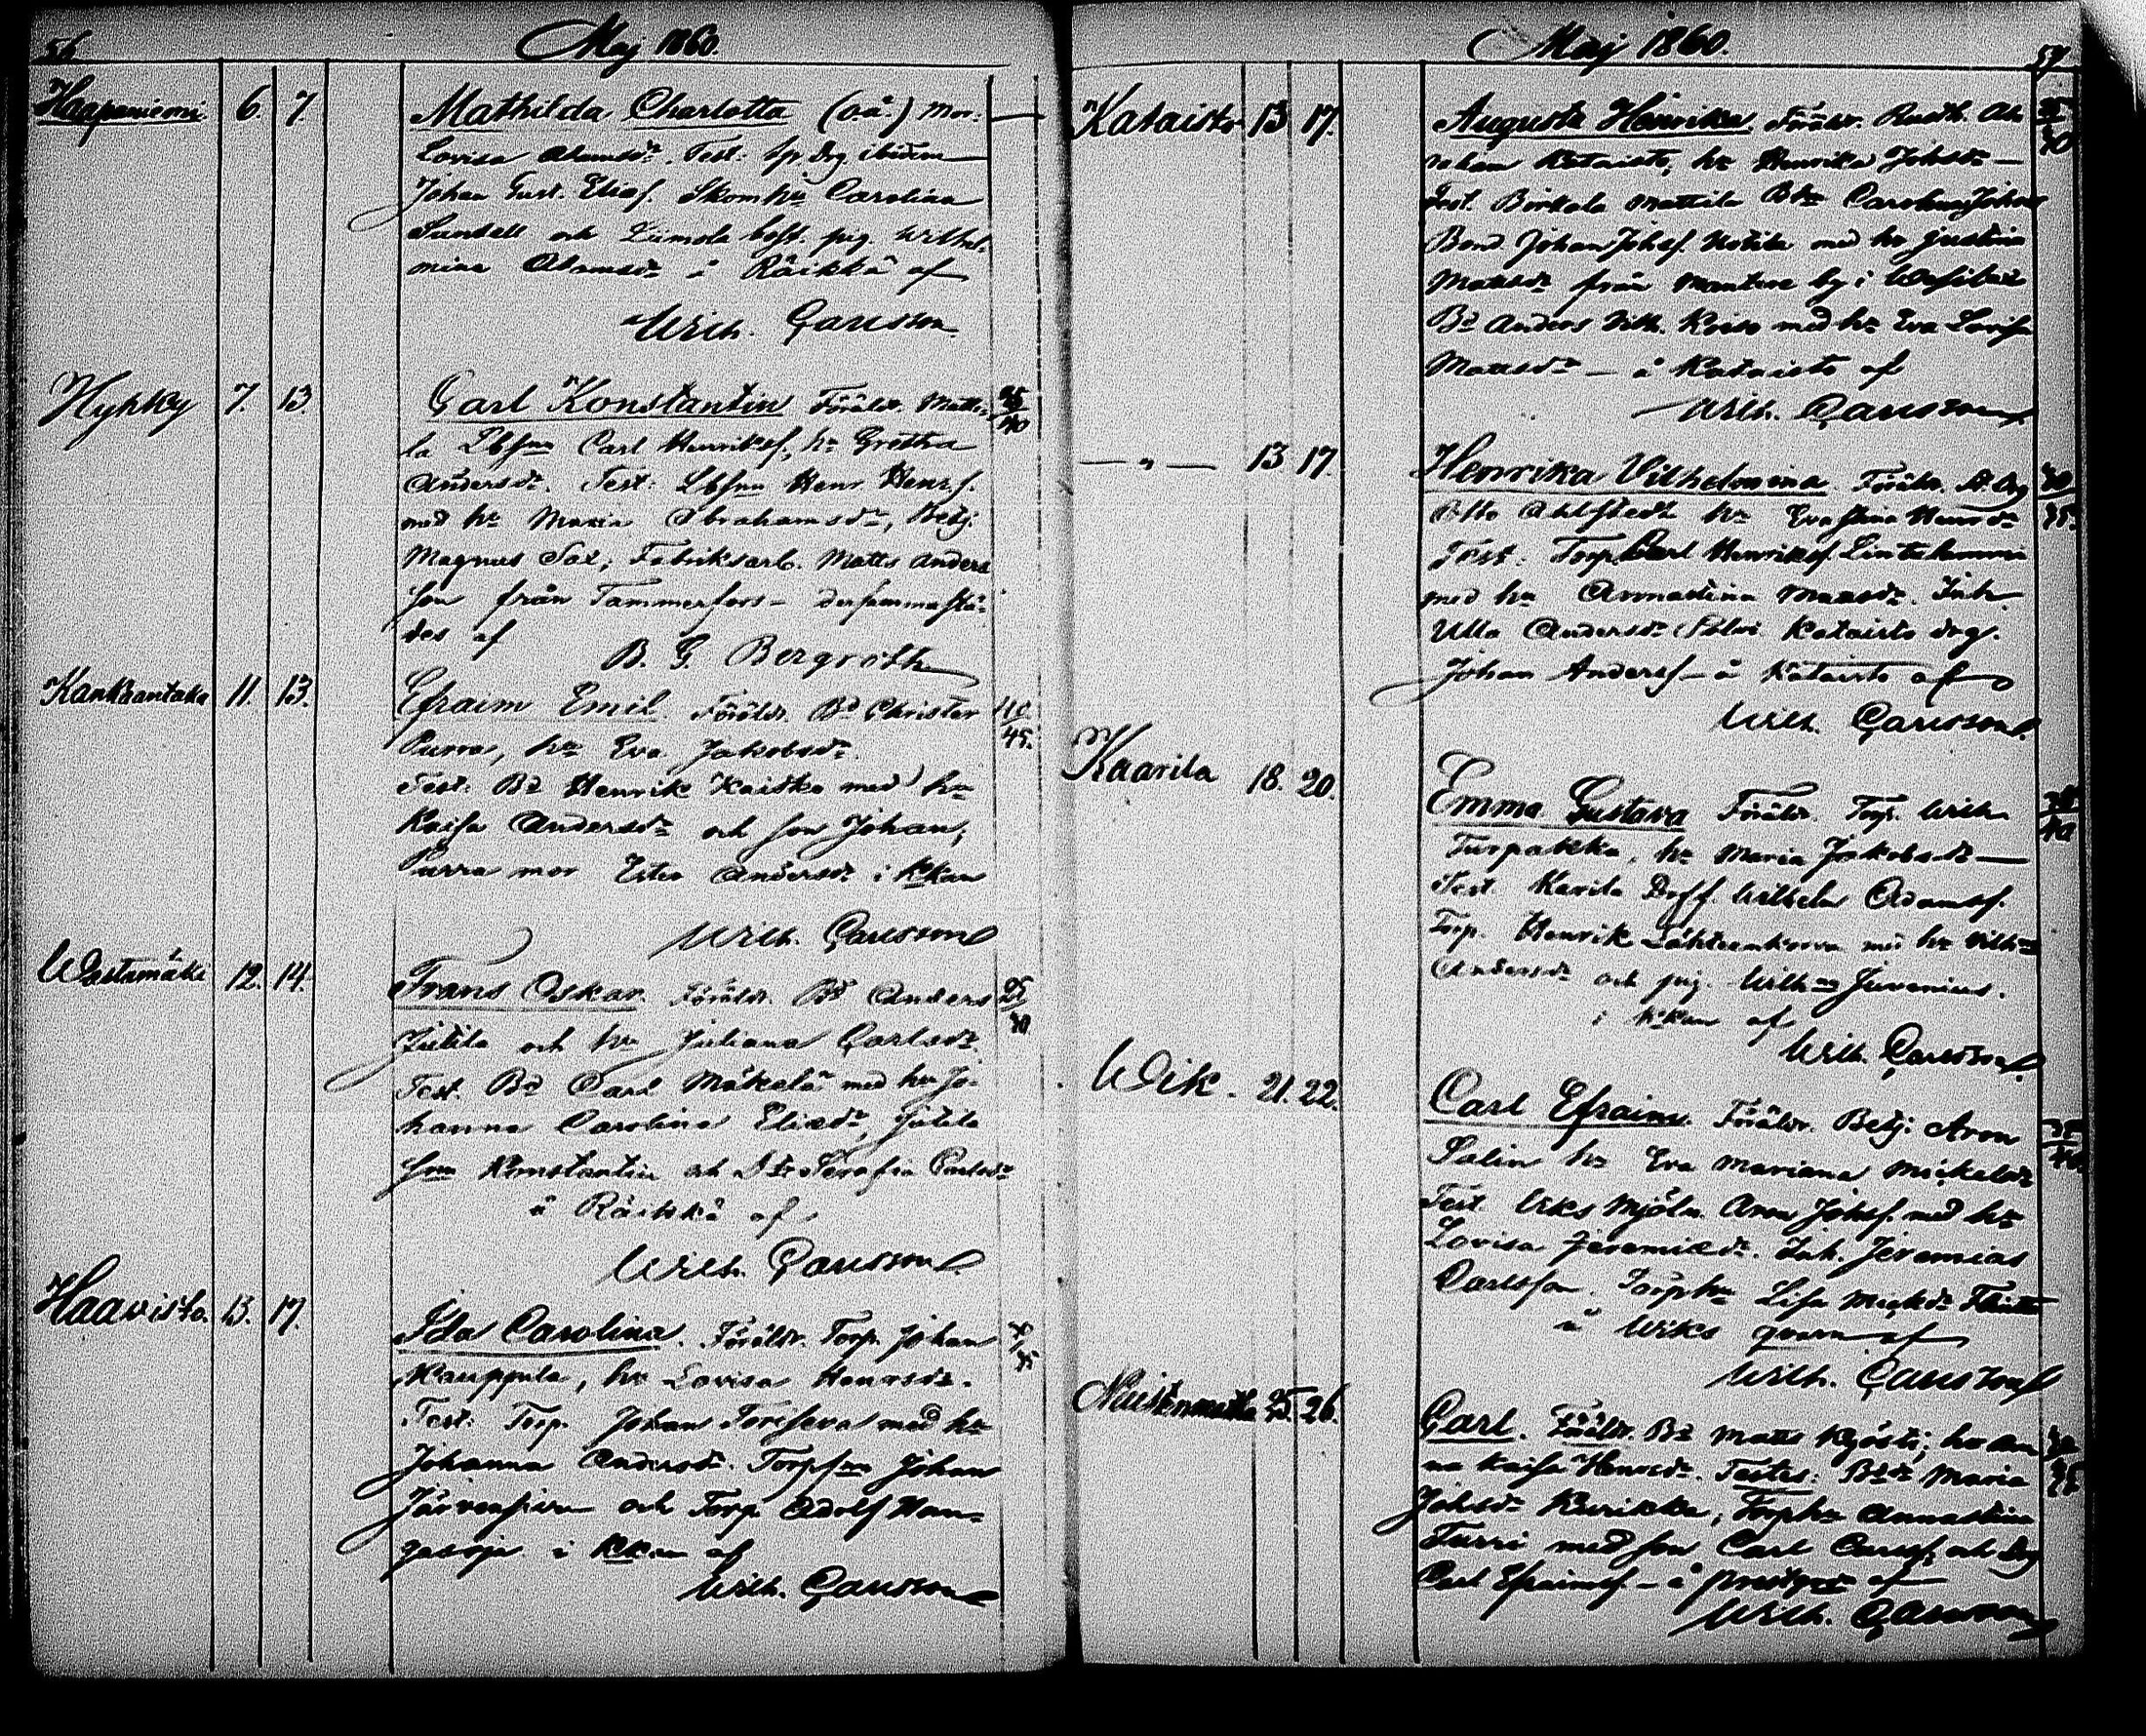 56.
Maj 1860.
Haapaniemi 6. 7. Mathilda Charlotta (o.ä.) Mor:
Lovisa Adamsdr. Test: Sp. drg ibidem
Johan Gust. Eliass. Skom. hu Carolina
Sundell och Liimola bost. pig. Wilhel-
mina Adamsdr å Räikkä af
Wilh. Carlsson
Hyhky 7. 13. Carl Konstantin Föräldr. Matti- 35/40
la Lbsm Carl Henrikss., hu Gretha
Andersdr. Test: Lbsm Henr. Henrs.
med hu Maria Abrahamsdr, Betj.
Magnus Sax, Fabriksarb. Matts Anders
son från Tammerfors – dersammastä-
des af
B. G. Bergroth
Kankaantaka 11. 13. Efraim Emil. Föräldr. Bd Christer 40/45.
Purra, hu Eva Jakobsdr.
Test: Bd Henrik Kaitka med hu
Kaisa Andersdr och son Johan;
Purra mor Ester Andersdr i kkan
Wilh. Carlsson
Westamäki 12. 14. Frans Oskar. Föräldr. Bd Anders 25/30
Jutila och hu Juliana Carlsdr.
Test. Bd Carl Mäkelä med hu Jo-
hanna Carolina Eliædr, Jutila
son Konstantin och Serafia Carlsdr
å Räikkä af
Wilh. Carlsson
Haavisto. 13. 17. Ida Carolina. Föräldr. Torp. Johan
Kauppila, hu Lovisa Henrsdr.
Test: Torp. Johan med hu
Johanna Andersdr. Torpson Johan
Järvensivu och Torp. Adolf Han-
gasoja i kkan af
Wilh. Carlsson
Maj 1860.
57.
Kataisto 13 17. Augusta Henrika. Föräldr. Rusth. Ab-
raham Kataisto, hu Henrika Johsdr —
Test. Birkala Mattila Carolina Johans
Bond Johan Johss. med hu Justina
Mattsdr från Mantere by i
Bd Anders Wilh. med hu Eva Lovisa
Mattsdr — å Kataisto af
Wilh. Carlsson
— " — 13 17. Henrika Vilhelmina. Föräldr. St. drg 30/35.
Otto Ahlstedt hu Eva Stina Henrsdr
Test: Torp. Carl Henrikss
med hu Annastina Mattsdr. Inh.
Ulla Andersdr Kataisto drg.
Johan Anderss — å Kataisto af
Wilh. Carlsson.
Kaarila 18. 20. Emma Gustava Föräldr. Torp. Wilh.
Turpakka, hu Maria Jakobsdr —
Test Karila Wilhelm Adamss.
Torp. Henrik Lähteenkorva med hu Wilhna
Andersdr och pig. Wilhna Juvenius.
i kkan af
Wilh. Carlsson.
Wik. 21. 22. Carl Efraim. Föräldr. Betj. Aron
Salin hu Eva Mariana Mickelsdr
Test Wiks Mjöln. Aron Johss. med hu
Lovisa Jeremiædr. Inh. Jeremias
Carlsson. Torphu Lisa Mickdr
å Wiks qvarn af
Wilh. Carlsson
25. 26. Carl. Föräldr. Bd Matts Kyösti; hu An-
na Kaisa Henrsdr. Testes: Maria
Johsdr Kurikka, Torphu Annastina
Turri med son Carl Carlss, och drg
Carl Efraimss – å prestgd af
Wilh. Carlsson